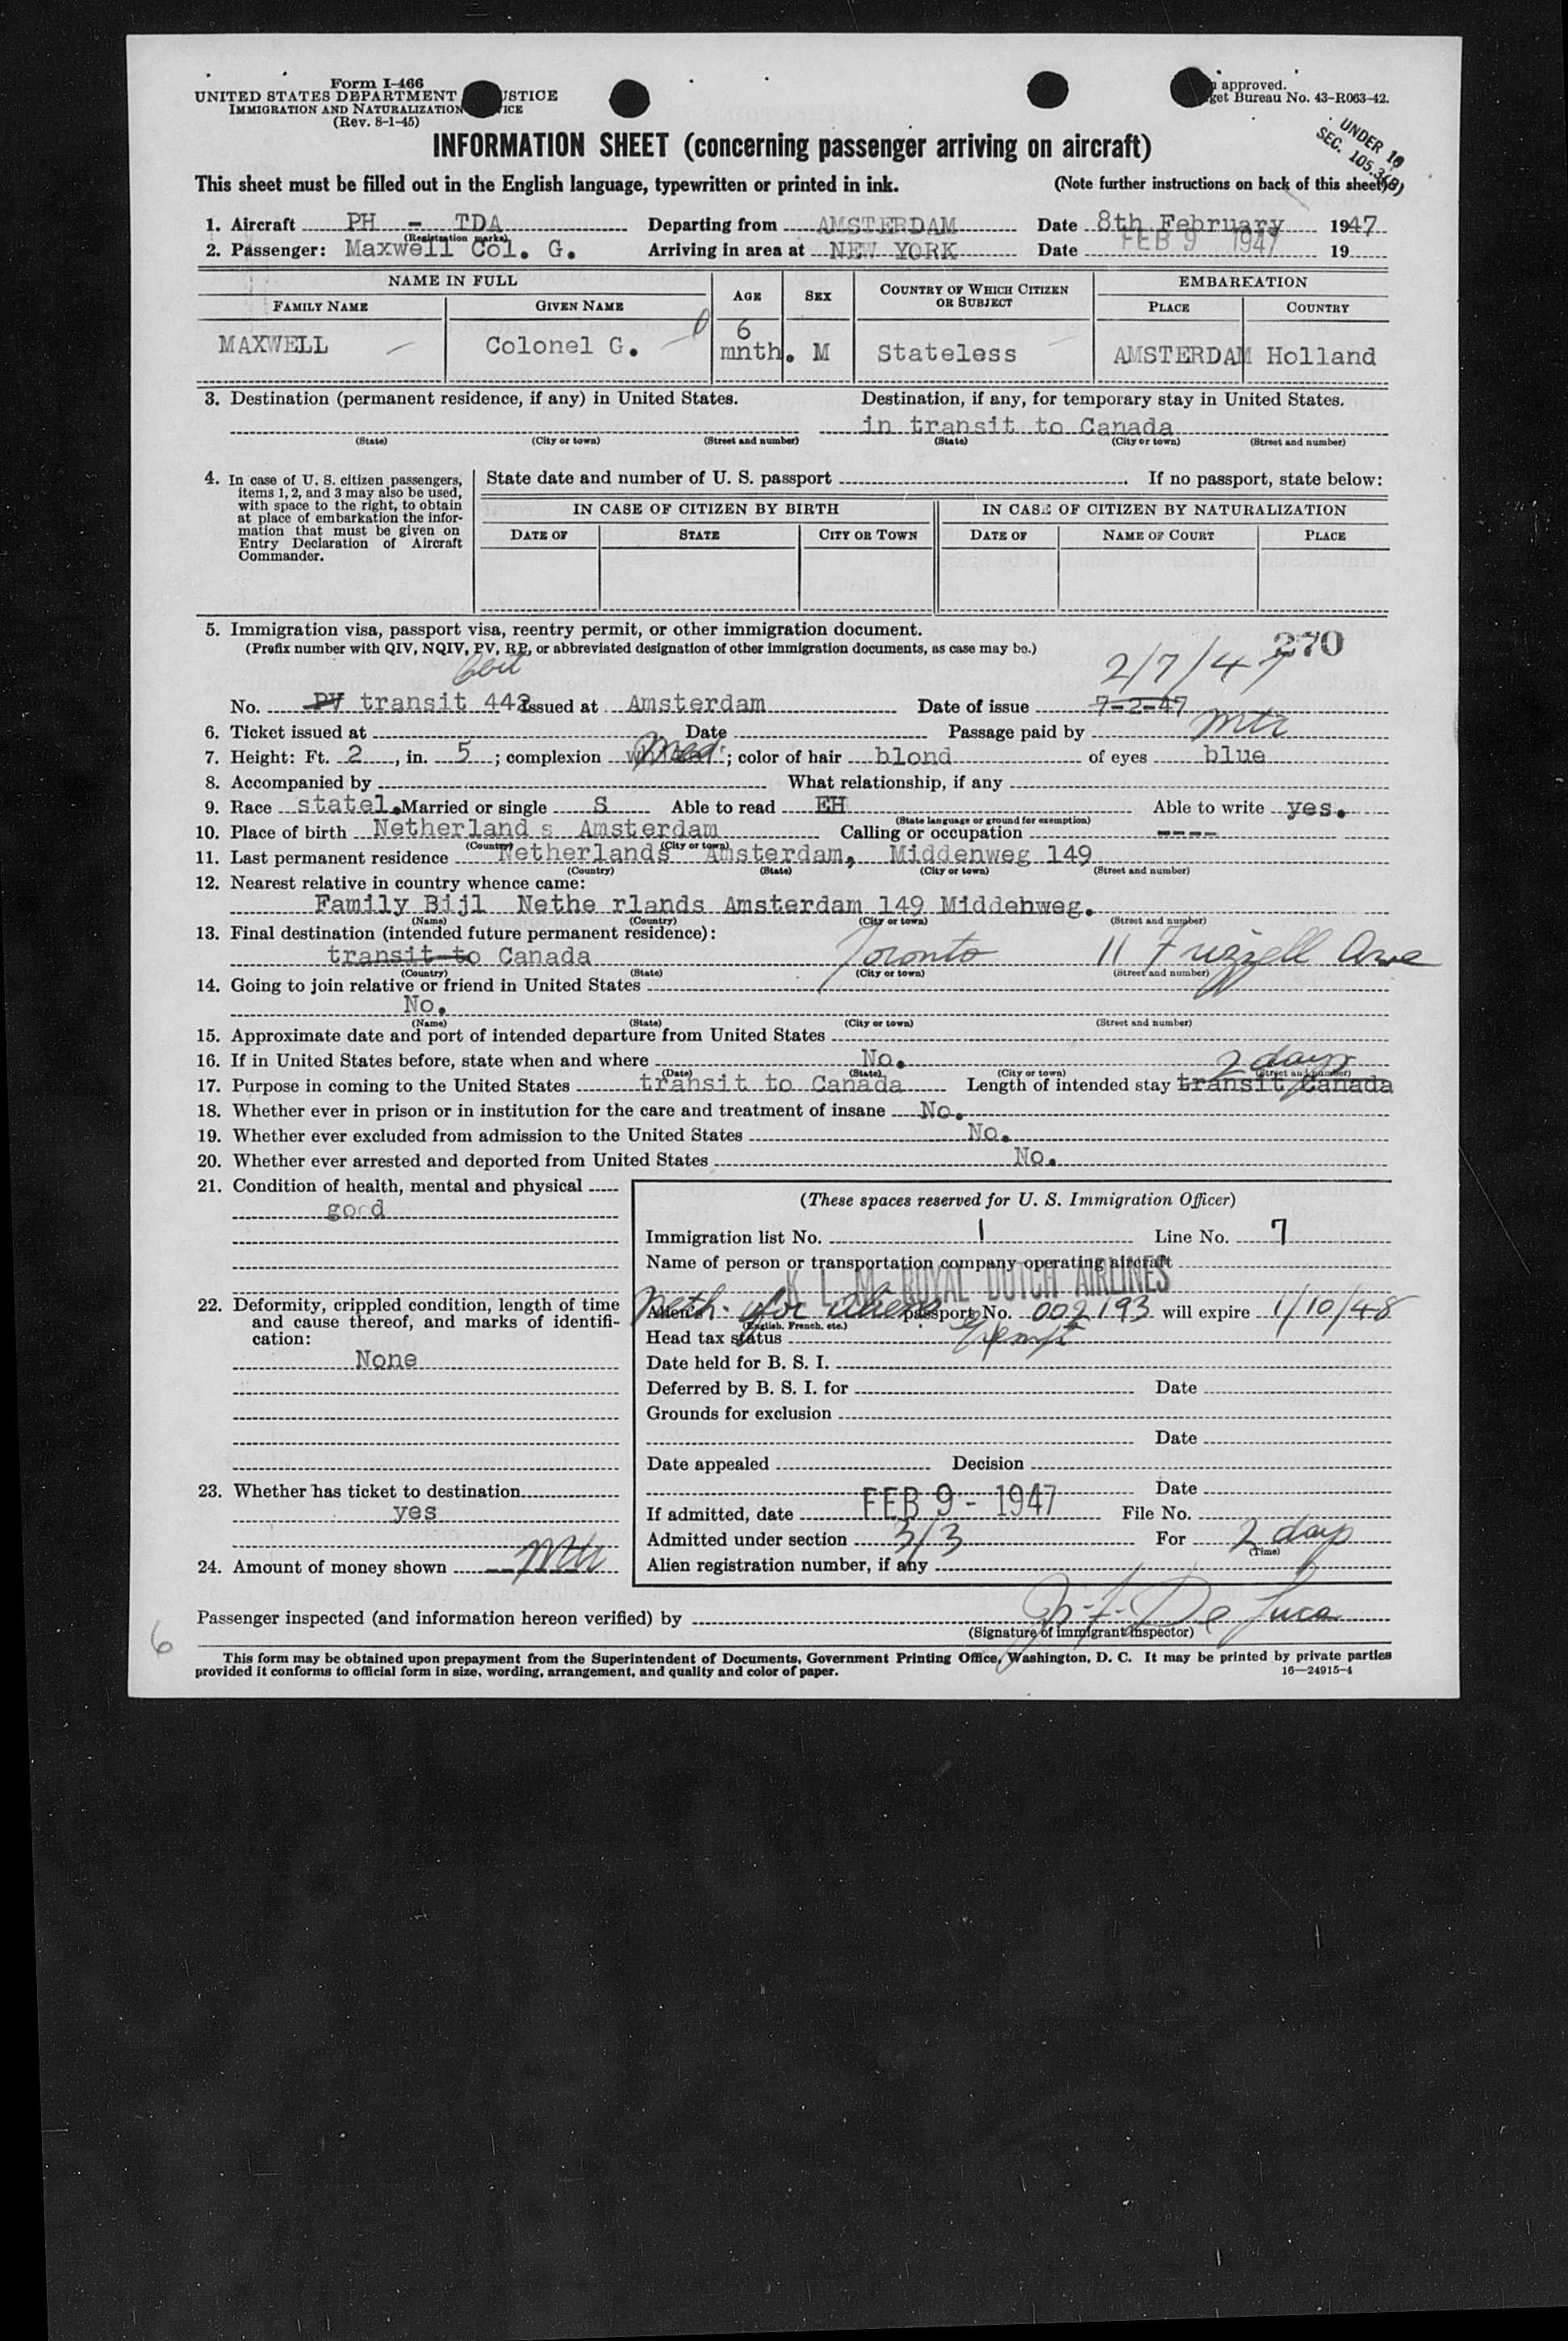 Form I-466
UNITED STATES DEPARTMENT JUSTICE
IMMIGRATION AND NATURALIZATION
(Rev. 8-1-45)
approved.
Bureau No. 43-R063-42.
UNDER 16
SEC. 105.3(B)
INFORMATION SHEET (concerning passenger arriving on aircraft)
This sheet must be filled out in the English language, typewritten or printed in ink. (Note further instructions on back of this sheet)
1. Aircraft PH - TDA Departing from AMSTERDAM Date 8th February 1947
(Registration marks)
2. Passenger: Maxwell Col. G. Arriving in area at NEW YORK Date FEB 9 1947 19
NAME IN FULL AGE SEX COUNTRY OF WHICH CITIZEN OR SUBJECT EMBARKATION
FAMILY NAME GIVEN NAME PLACE COUNTRY
MAXWELL Colonel G. 6 mnth. M Stateless AMSTERDAM Holland
3. Destination (permanent residence, if any) in United States. Destination, if any, for temporary stay in United States.
in transit to Canada
(State) (City or town) (Street and number) (State) (City or town) (Street and number)
4. In case of U. S. citizen passengers, items 1, 2, and 3 may also be used, with space to the right, to obtain at place of embarkation the information that must be given on Entry Declaration of Aircraft Commander.
State date and number of U. S. passport If no passport, state below:
IN CASE OF CITIZEN BY BIRTH IN CASE OF CITIZEN BY NATURALIZATION
DATE OF STATE CITY OR TOWN DATE OF NAME OF COURT PLACE
5. Immigration visa, passport visa, reentry permit, or other immigration document.
(Prefix number with QIV, NQIV, PV, RP, or abbreviated designation of other immigration documents, as case may be.)
270
2/7/47
No. PV transit 442 Issued at Amsterdam Date of issue 7-2-47
6. Ticket issued at Date Passage paid by mtr
7. Height: Ft. 2, in. 5; complexion Med.; color of hair blond of eyes blue
8. Accompanied by What relationship, if any
9. Race statel. Married or single S Able to read EH Able to write yes.
(State language or ground for exemption)
10. Place of birth Netherlands Amsterdam Calling or occupation ----
(Country) (City or town)
11. Last permanent residence Netherlands Amsterdam, Middenweg 149
(Country) (State) (City or town) (Street and number)
12. Nearest relative in country whence came:
Family Bijl Nethe rlands Amsterdam 149 Middehweg.
(Name) (Country) (City or town) (Street and number)
13. Final destination (intended future permanent residence):
transit to Canada Toronto 11 Frizzell Ave
(Country) (State) (City or town) (Street and number)
14. Going to join relative or friend in United States
No.
(Name) (State) (City or town) (Street and number)
15. Approximate date and port of intended departure from United States
16. If in United States before, state when and where No. 2 days
(Date) (State) (City or town) (Street and number)
17. Purpose in coming to the United States transit to Canada Length of intended stay transit Canada
18. Whether ever in prison or in institution for the care and treatment of insane No.
19. Whether ever excluded from admission to the United States No.
20. Whether ever arrested and deported from United States No.
21. Condition of health, mental and physical
good
22. Deformity, crippled condition, length of time and cause thereof, and marks of identification:
None
23. Whether has ticket to destination
yes
24. Amount of money shown Mtr
(These spaces reserved for U. S. Immigration Officer)
Immigration list No. 1 Line No. 7
Name of person or transportation company operating aircraft
K L M ROYAL DUTCH AIRLINES
Alien's Neth. for Aliens passport No. 002193 will expire 1/10/48
(English, French, etc.)
Head tax status Exempt
Date held for B. S. I.
Deferred by B. S. I. for Date
Grounds for exclusion
Date
Date appealed Decision
Date
If admitted, date FEB 9 - 1947 File No.
Admitted under section 3/3 For 2 days
(Time)
Alien registration number, if any
Passenger inspected (and information hereon verified) by De Luca
(Signature of immigrant inspector)
6
This form may be obtained upon prepayment from the Superintendent of Documents, Government Printing Office, Washington, D. C. It may be printed by private parties
provided it conforms to official form in size, wording, arrangement, and quality and color of paper. 16—24915-4